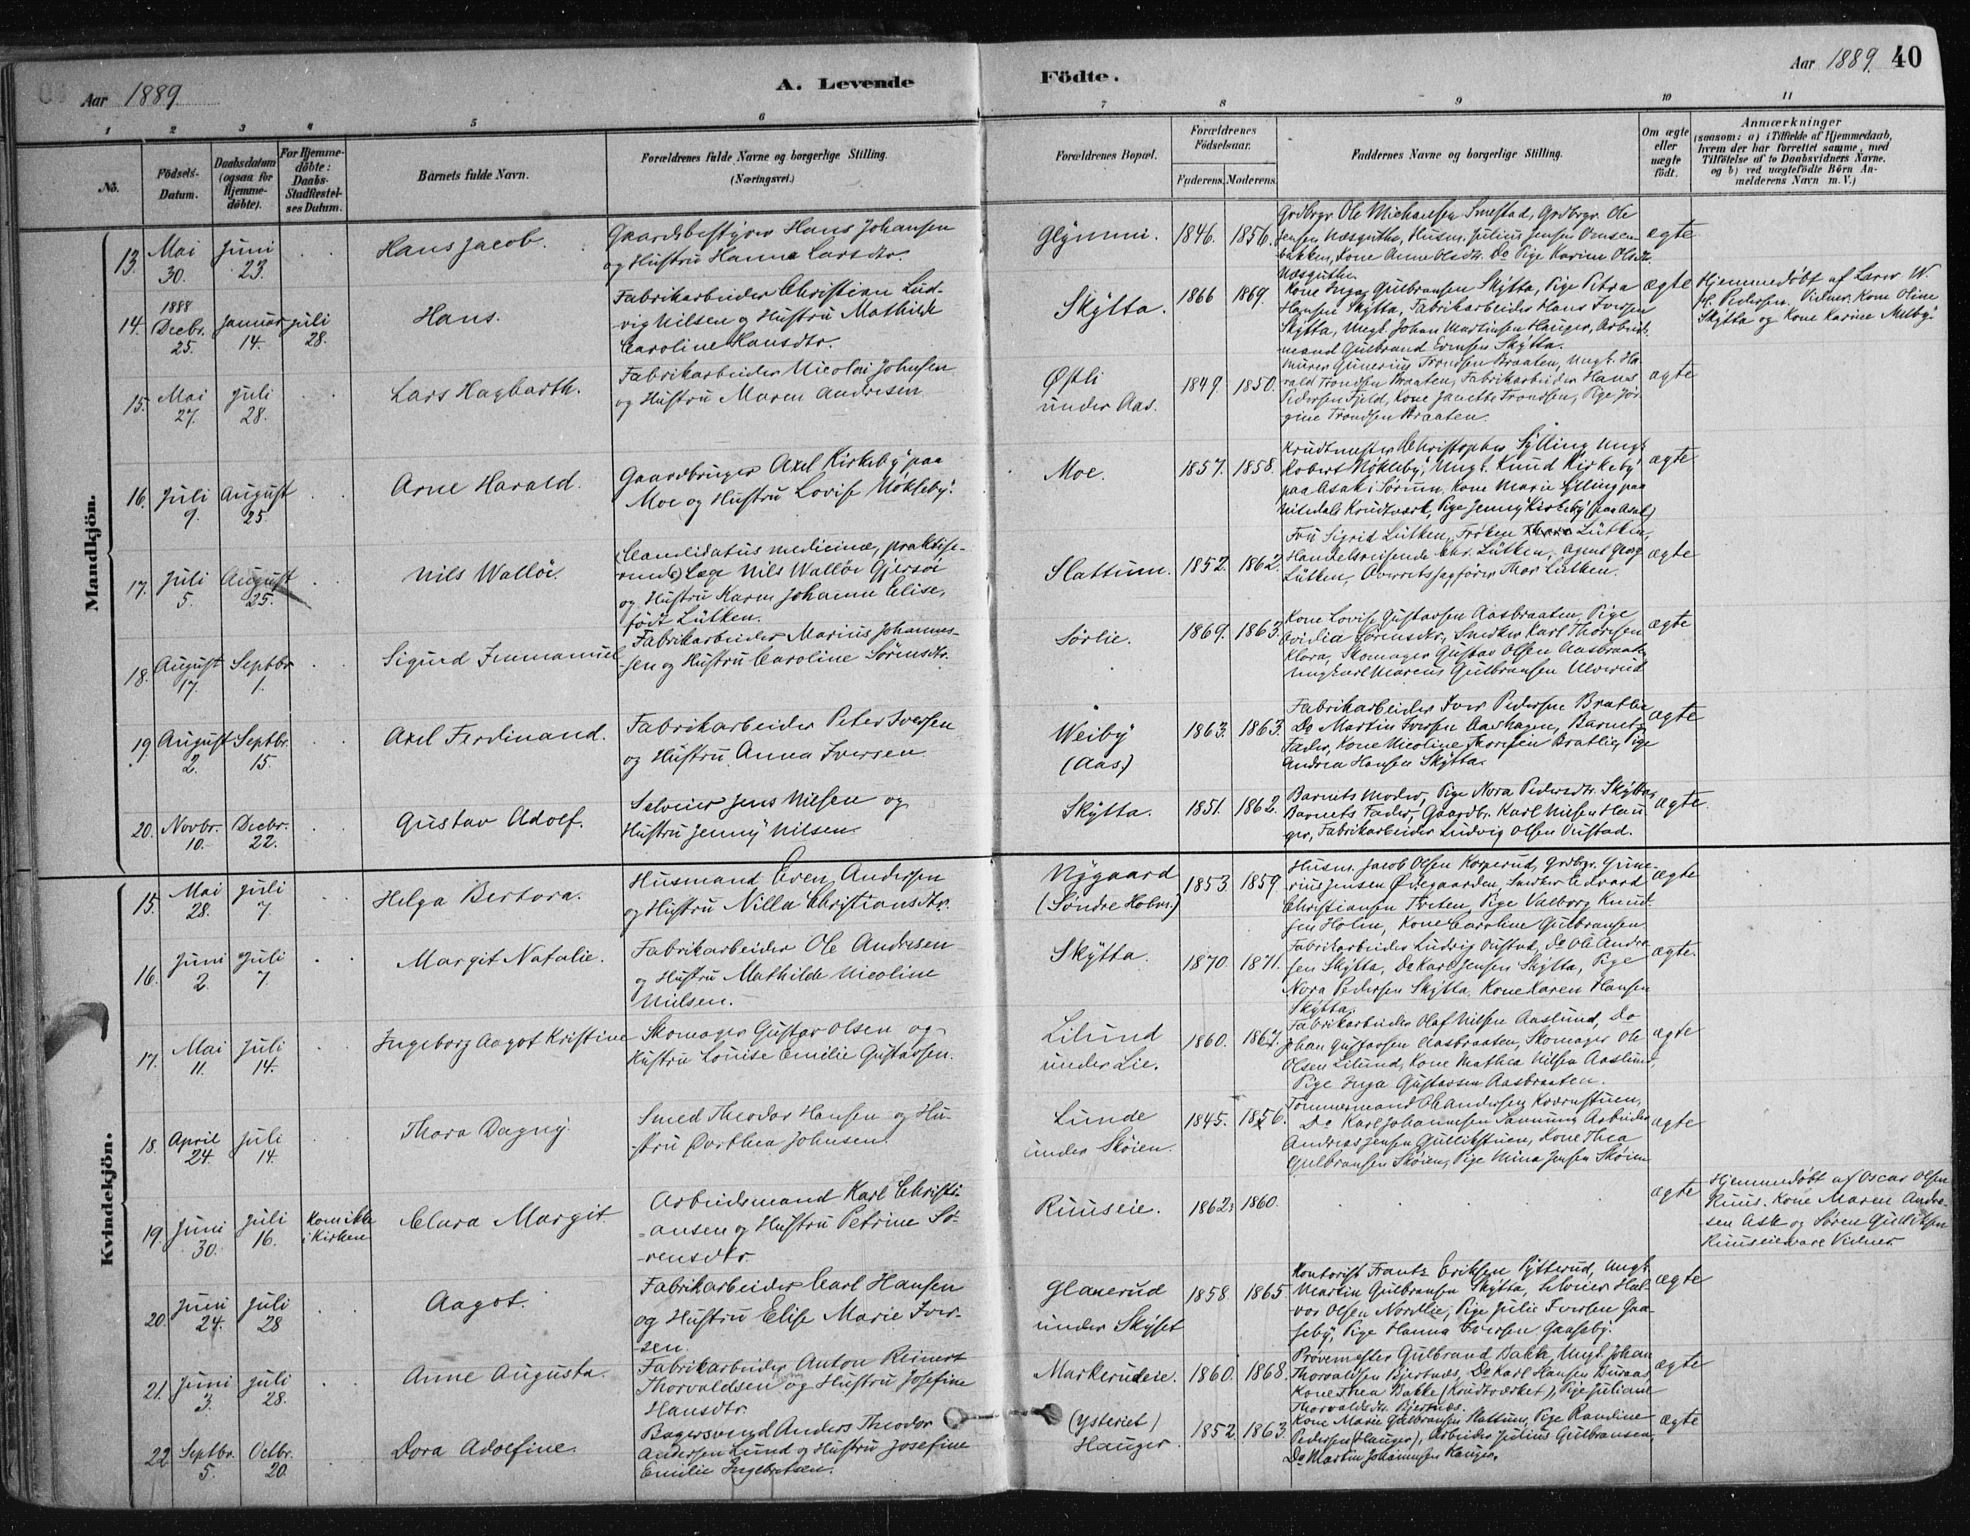 Aar 1889
A. Levende
Födte.
Aar 1889. 40
1 2 3 4 5 6 7 8 9 10 11
No.
Födsels-
Datum.
Daabsdatum
(ogsaa for
Hjemme-
döbte).
For Hjemme-
döbte:
Daabs-
Stadfæstel-
ses Datum.
Barnets fulde Navn.
Forældrenes fulde Navne og borgerlige Stilling.
(Næringsvei.)
Forældrenes Bopæl.
Forældrenes
Födselsaar.
Faderens. Moderens.
Faddernes Navne og borgerlige Stilling.
Om ægte
eller
uægte
födt.
Anmærkninger
(saasom: a) i Tilfælde af Hjemmedaab,
hvem der har forrettet samme, med
Tilföielse af to Daabsvidners Navne,
og b) ved uægtefödte Börn An-
melderens Navn m. V.)
Mandkjön.
13. Mai
30.
Juni
23.
Hans Jacob.
Gaardsbestyrer Hans Johansen
og Hustru Hanna Larsdtr.
Glymmi. 1846. 1856.
Grdbrgr. Ole Michaelsen Smestad, Grdbrgr. Ole
Jensen Næsguthe, Husm. Julius Jensen
bakken, Kone Anne Olsdtr. Do Pige Karine Olsdtr.
Næsguthe
ægte
14. 1888
Decbr.
25.
Januar
14.
Juli
28.
Hans.
Fabrikarbeider Christian Lud-
vig Nilsen og Hustru Mathilde
Caroline Hansdtr.
Skytta. 1866 1869.
Kone Inga Gulbransen Skytta, Pige Petra
Hansen Skytta, Fabrikarbeider Hans Iversen
Skytta, Ungk. Johan Martinsen Hauger, Arbeids-
mand Gulbrand Evensen Skytta.
ægte
Hjemmedøbt af Lærer W.
H. Pedersen. Vidner: Kone Oline
Skytta og Kone Karine Melby.
15. Mai
27.
Juli
28.
Lars Hagbarth.
Fabrikarbeider Nicolai Johnsen
og Hustru Maren Andresen
Østli
under Aas.
1849 1850.
Murer Gunerius Trondsen Braaten, Ungk. Ha-
rald Trondsen Braaten, Fabrikarbeider Hans
Pedersen Fjeld, Kone Janette Trondsen, Pige Jør-
gine Trondsen Braaten.
ægte
16. Juli
9.
August
25.
Arne Harald.
Gaardbruger Axel Kirkeby paa
Moe og Hustru Lovise Nökleby.
Moe. 1857. 1858.
Krudtmester Christopher Sylling, Ungk.
Robert Nökleby, Ungk. Knud Kirkeby
paa Asak i Sörum, Kone Marie Sylling paa
Nitedals Krudtværk, Pige Jenny Kirkeby (paa Asak)
ægte
17. Juli
5.
August
25.
Nils Walløe.
(Candidatus medicinæ, praktise-
rende) Læge Nils Walløe Gjersøe
og Hustru Karen Johanne Elise,
født Lütken.
Slattum. 1852. 1862.
Fru Sigrid Lütken, Frøken Thora Lütken,
Handelsreisende Chr. Lütken, Agent Georg
Lütken, Overretssagfører Thor Lütken.
ægte
18. August
17.
Septbr.
1.
Sigurd Immanuel
Fabrikarbeider Marius Johannes-
sen og Hustru Caroline Sørensdtr.
Sørlie. 1869. 1863.
Kone Lovise Gustavsen Aasbraaten, Pige
Ovidia Sørensdtr, Snedker Karl Thoresen
Klora, Skomager Gustav Olsen Aasbraaten
Ungkarl Marcus Gulbransen Ulverud
ægte
19. August
2.
Septbr.
15.
Axel Ferdinand.
Fabrikarbeider Peter Iversen
og Hustru Anna Iversen
Weiby
(Aas.)
1863. 1863.
Fabrikarbeider Iver Pedersen Bratlie
Do Martin Iversen Aashagen, Barnets
Fader, Kone Nicoline Thoresen Bratlie, Pige
Andrea Hansen Skytta.
ægte
20. Novbr.
10.
Decbr.
22.
Gustav Adolf.
Selveier Jens Nilsen og
Hustru Jenny Nilsen.
Skytta. 1851. 1862.
Barnets Moder, Pige Nora Pedersdtr. Skytta,
Barnets Fader, Gaardbr. Karl Nilsen Hau-
ger, Fabrikarbeider Ludvig Olsen Ourstad.
ægte.
Kvindekjön.
15. Mai
28.
Juli
7.
Helga Bertora.
Husmand Even Andersen
og Hustru Nilla Christiansdtr.
Nygaard
(Søndre Holm.)
1853. 1859.
Husm. Jacob Olsen Korperud, Grdbrgr. Gune-
rius Jensen Øvregaarden, Snedker Edvard
Christiansen Tveten, Pige Valborg Knud-
sen Holm, Kone Caroline Gulbransen.
ægte
16. Juni
2.
Juli
7.
Margit Natalie.
Fabrikarbeider Ole Andresen
og Hustru Mathilde Nicoline
Nielsen.
Skytta. 1870. 1871.
Fabrikarbeider Ludvig Ourstad, Do Ole Andre-
sen Skytta, Do Karl Jensen Skytta, Pige
Nora Pedersen Skytta, Kone Karen Hansen
Skytta.
ægte.
17. Mai
11.
Juli
14.
Ingeborg Aagot Kristine
Skomager Gustav Olsen og
Hustru Louise Emilie Gustavsen.
Lilund
under Lie.
1860. 1867.
Fabrikarbeider Olaf Nilsen Aaslund, Do
Johan Gustavsen Aasbraaten, Skomager Ole
Olsen Lilund, Kone Mathea Nilsen Aaslund,
Pige Inga Gustavsen Aasbraaten.
ægte
18. April
24.
Juli
14.
Thora Dagny.
Smed Theodor Hansen og Hu-
stru Dorthea Johnsen.
Lunde
under Skøien.
1845. 1856.
Tømmermand Ole Andersen Kværnstuen,
Do Karl Johannesen Sannung, Arbeider
Andreas Jensen Gullikstuen, Kone Thea
Gulbransen Skøien, Pige Mina Jensen Skøien
ægte
19. Juni
30.
Juli
16.
Kom ikke
i Kirken
Clara Margit.
Arbeidsmand Karl Christi-
ansen og Hustru Petrine Sø-
rensdtr.
Ruuseie. 1862. 1860.
ægte
Hjemmedøbt af Oscar Olsen
Ruus. Kone Maren Andre-
sen Ask og Søren Gulliksen
Ruuseie vare Vidner.
20. Juni
24.
Juli
28
Aagot.
Fabrikarbeider Carl Hansen
og Hustru Elise Marie Iver-
sen.
Glanerud
under Skyset
1858. 1865.
Kontorist Frantz Eriksen Rytterud, Ungk.
Martin Gulbransen Skytta, Selveier Hal-
vor Olsen Nordlie, Pige Julie Iversen Gaa-
seby, Pige Hanna Iversen Gaaseby.
ægte
21. Juni
3.
Juli
28.
Anne Augusta.
Fabrikarbeider Anton Reinert
Thorvaldsen og Hustru Josefine
Hansdtr.
Markerudeie. 1860. 1868.
Prøvemester Gulbrand Bakke, Ungk. Johan
Thorvaldsen Bjertnæs, Do Karl Hansen Buraas,
Kone Thea Bakke (Krudtværket), Pige Juliane
Thorvaldsdtr. Bjertnæs.
ægte
22. Septbr.
5.
Octbr.
20.
Dora Adolfine.
Bagersvend Anders Theodor
Andersen Lund og Hustru Josefine
Emilie Ingebretsen.
(Ysteriet)
Hauger.
1852 1863.
Kone Marie Gulbransen Slattum, Pige Randine
Pedersen (Hauger), Arbeider Julius Gulbransen,
Do Martin Johannesen Hauger.
ægte